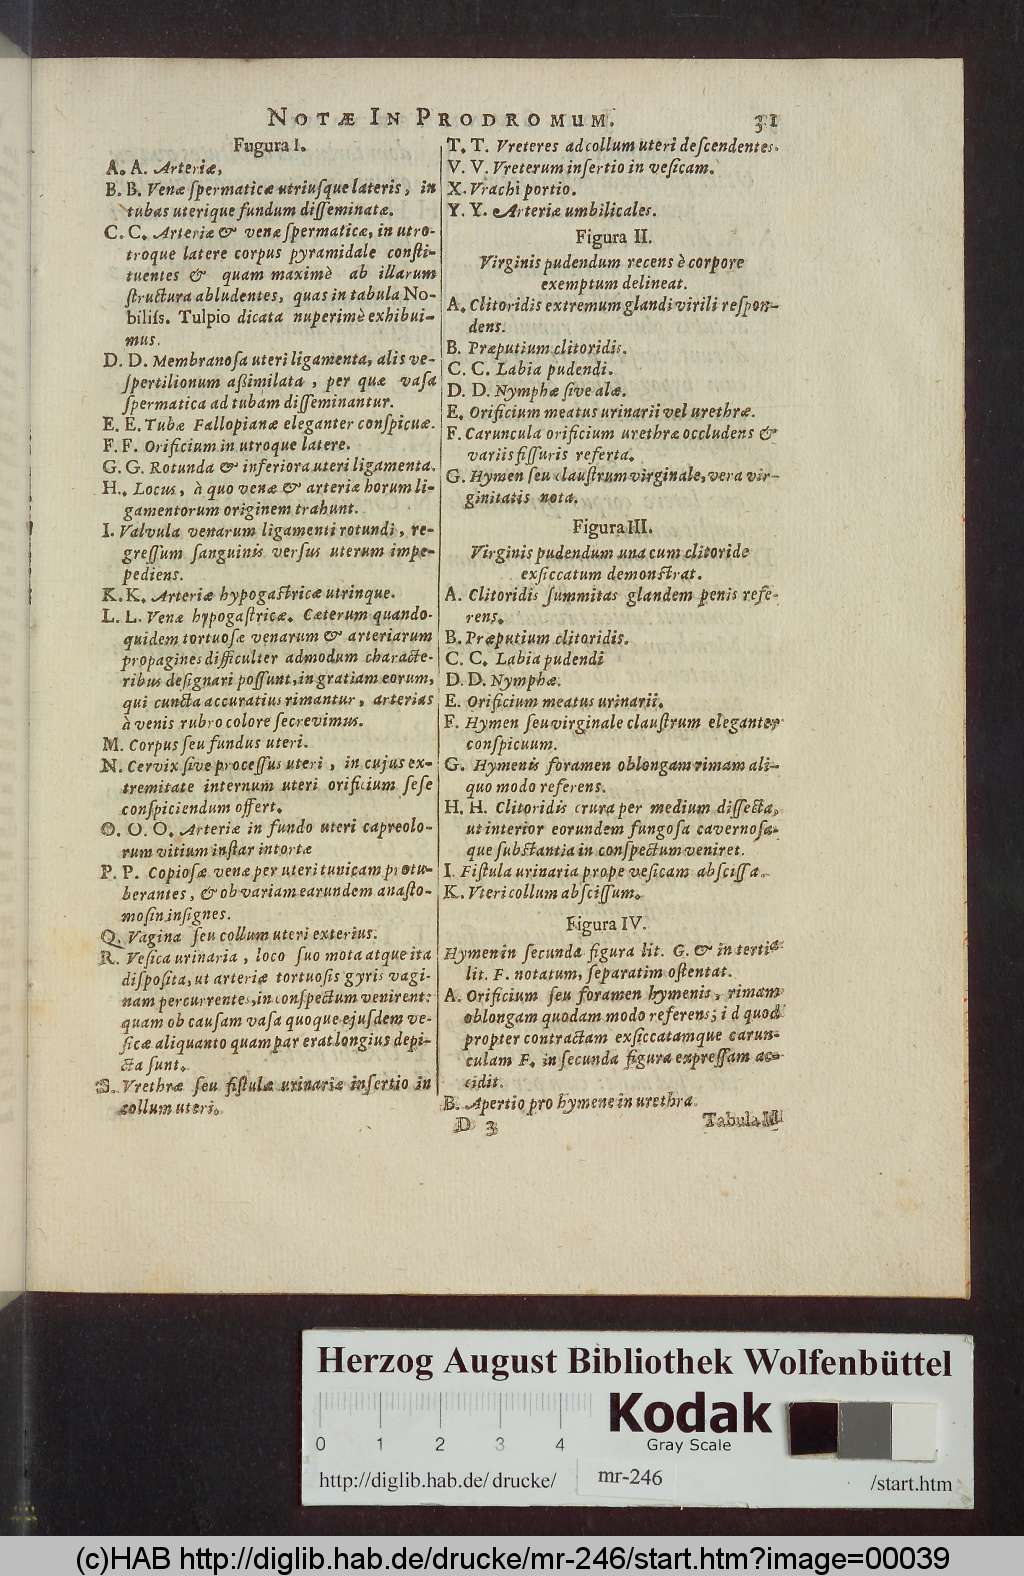 NOTÆ IN PRODROMUM. 31
Fugura I.
A. A. Arteriæ,
B. B. Venæ ſpermaticæ utriuſque lateris, in
tubas uterique fundum diſſeminatæ.
C. C. Arteriæ & venæ ſpermaticæ, in utro-
troque latere corpus pyramidale conſti-
tuentes & quam maximè ab illarum
ſtructura abludentes, quas in tabula No-
biliſs. Tulpio dicata nuperimè exhibui-
mus.
D. D. Membranoſa uteri ligamenta, alis ve-
ſpertilionum aßimilata, per quæ vaſa
ſpermatica ad tubam diſſeminantur.
E. E. Tubæ Fallopianæ eleganter conſpicuæ.
F. F. Orificium in utroque latere.
G. G. Rotunda & inferiora uteri ligamenta.
H. Locus, à quo venæ & arteriæ horum li-
gamentorum originem trahunt.
I. Valvula venarum ligamenti rotundi, re-
greſſum ſanguinis verſus uterum impe-
pediens.
K. K. Arteriæ hypogaſtricæ utrinque.
L. L. Venæ hypogaſtricæ. Cæterum quando-
quidem tortuoſæ venarum & arteriarum
propagines difficulter admodum characte-
ribus deſignari poſſunt, in gratiam eorum,
qui cuncta accuratius rimantur, arterias
à venis rubro colore ſecrevimus.
M. Corpus ſeu fundus uteri.
N. Cervix ſive proceſſus uteri, in cujus ex-
tremitate internum uteri orificium ſeſe
conſpiciendum offert.
O. O. O. Arteriæ in fundo uteri capreolo-
rum vitium inſtar intortæ
P. P. Copioſæ venæ per uteri tunicam protu-
berantes, & ob variam earundem anaſto-
moſin inſignes.
Q. Vagina ſeu collum uteri exterius.
R. Veſica urinaria, loco ſuo mota atque ita
diſpoſita, ut arteriæ tortuoſis gyris vagi-
nam percurrentes, in conſpectum venirent:
quam ob cauſam vaſa quoque ejuſdem ve-
ſicæ aliquanto quam par erat longius depi-
cta ſunt.
S. Vrethræ ſeu fiſtulæ urinariæ inſertio in
collum uteri.
T. T. Vreteres ad collum uteri deſcendentes.
V. V. Vreterum inſertio in veſicam.
X. Vrachi portio.
Y. Y. Arteriæ umbilicales.
Figura II.
Virginis pudendum recens è corpore
exemptum delineat.
A. Clitoridis extremum glandi virili reſpon-
dens.
B. Præputium clitoridis.
C. C. Labia pudendi.
D. D. Nymphæ ſive alæ.
E. Orificium meatus urinarii vel urethræ.
F. Caruncula orificium urethræ occludens &
variis fiſſuris referta.
G. Hymen ſeu clauſtrum virginale, vera vir-
ginitatis nota.
Figura III.
Virginis pudendum una cum clitoride
exſiccatum demonſtrat.
A. Clitoridis ſummitas glandem penis refe-
rens.
B. Præputium clitoridis.
C. C. Labia pudendi
D. D. Nymphæ.
E. Orificium meatus urinarii.
F. Hymen ſeu virginale clauſtrum eleganter
conſpicuum.
G. Hymenis foramen oblongam rimam ali-
quo modo referens.
H. H. Clitoridis crura per medium diſſecta,
ut interior eorundem fungoſa cavernoſa-
que ſubſtantia in conſpectum veniret.
I. Fiſtula urinaria prope veſicam abſciſſa.
K. Vteri collum abſciſſum.
Figura IV.
Hymen in ſecunda figura lit. G. & in tertia
lit. F. notatum, ſeparatim oſtentat.
A. Orificium ſeu foramen hymenis, rimam
oblongam quodam modo referens; i d quod
propter contractam exſiccatamque carun-
culam F. in ſecunda figura expreſſam ac-
cidit.
B. Apertio pro hymene in urethra.
D 3 Tabula II
Herzog August Bibliothek Wolfenbüttel
Kodak
Gray Scale
0 1 2 3 4
http://diglib.hab.de/ drucke/ mr-246 /start.htm
(c)HAB http://diglib.hab.de/drucke/mr-246/start.htm?image=00039